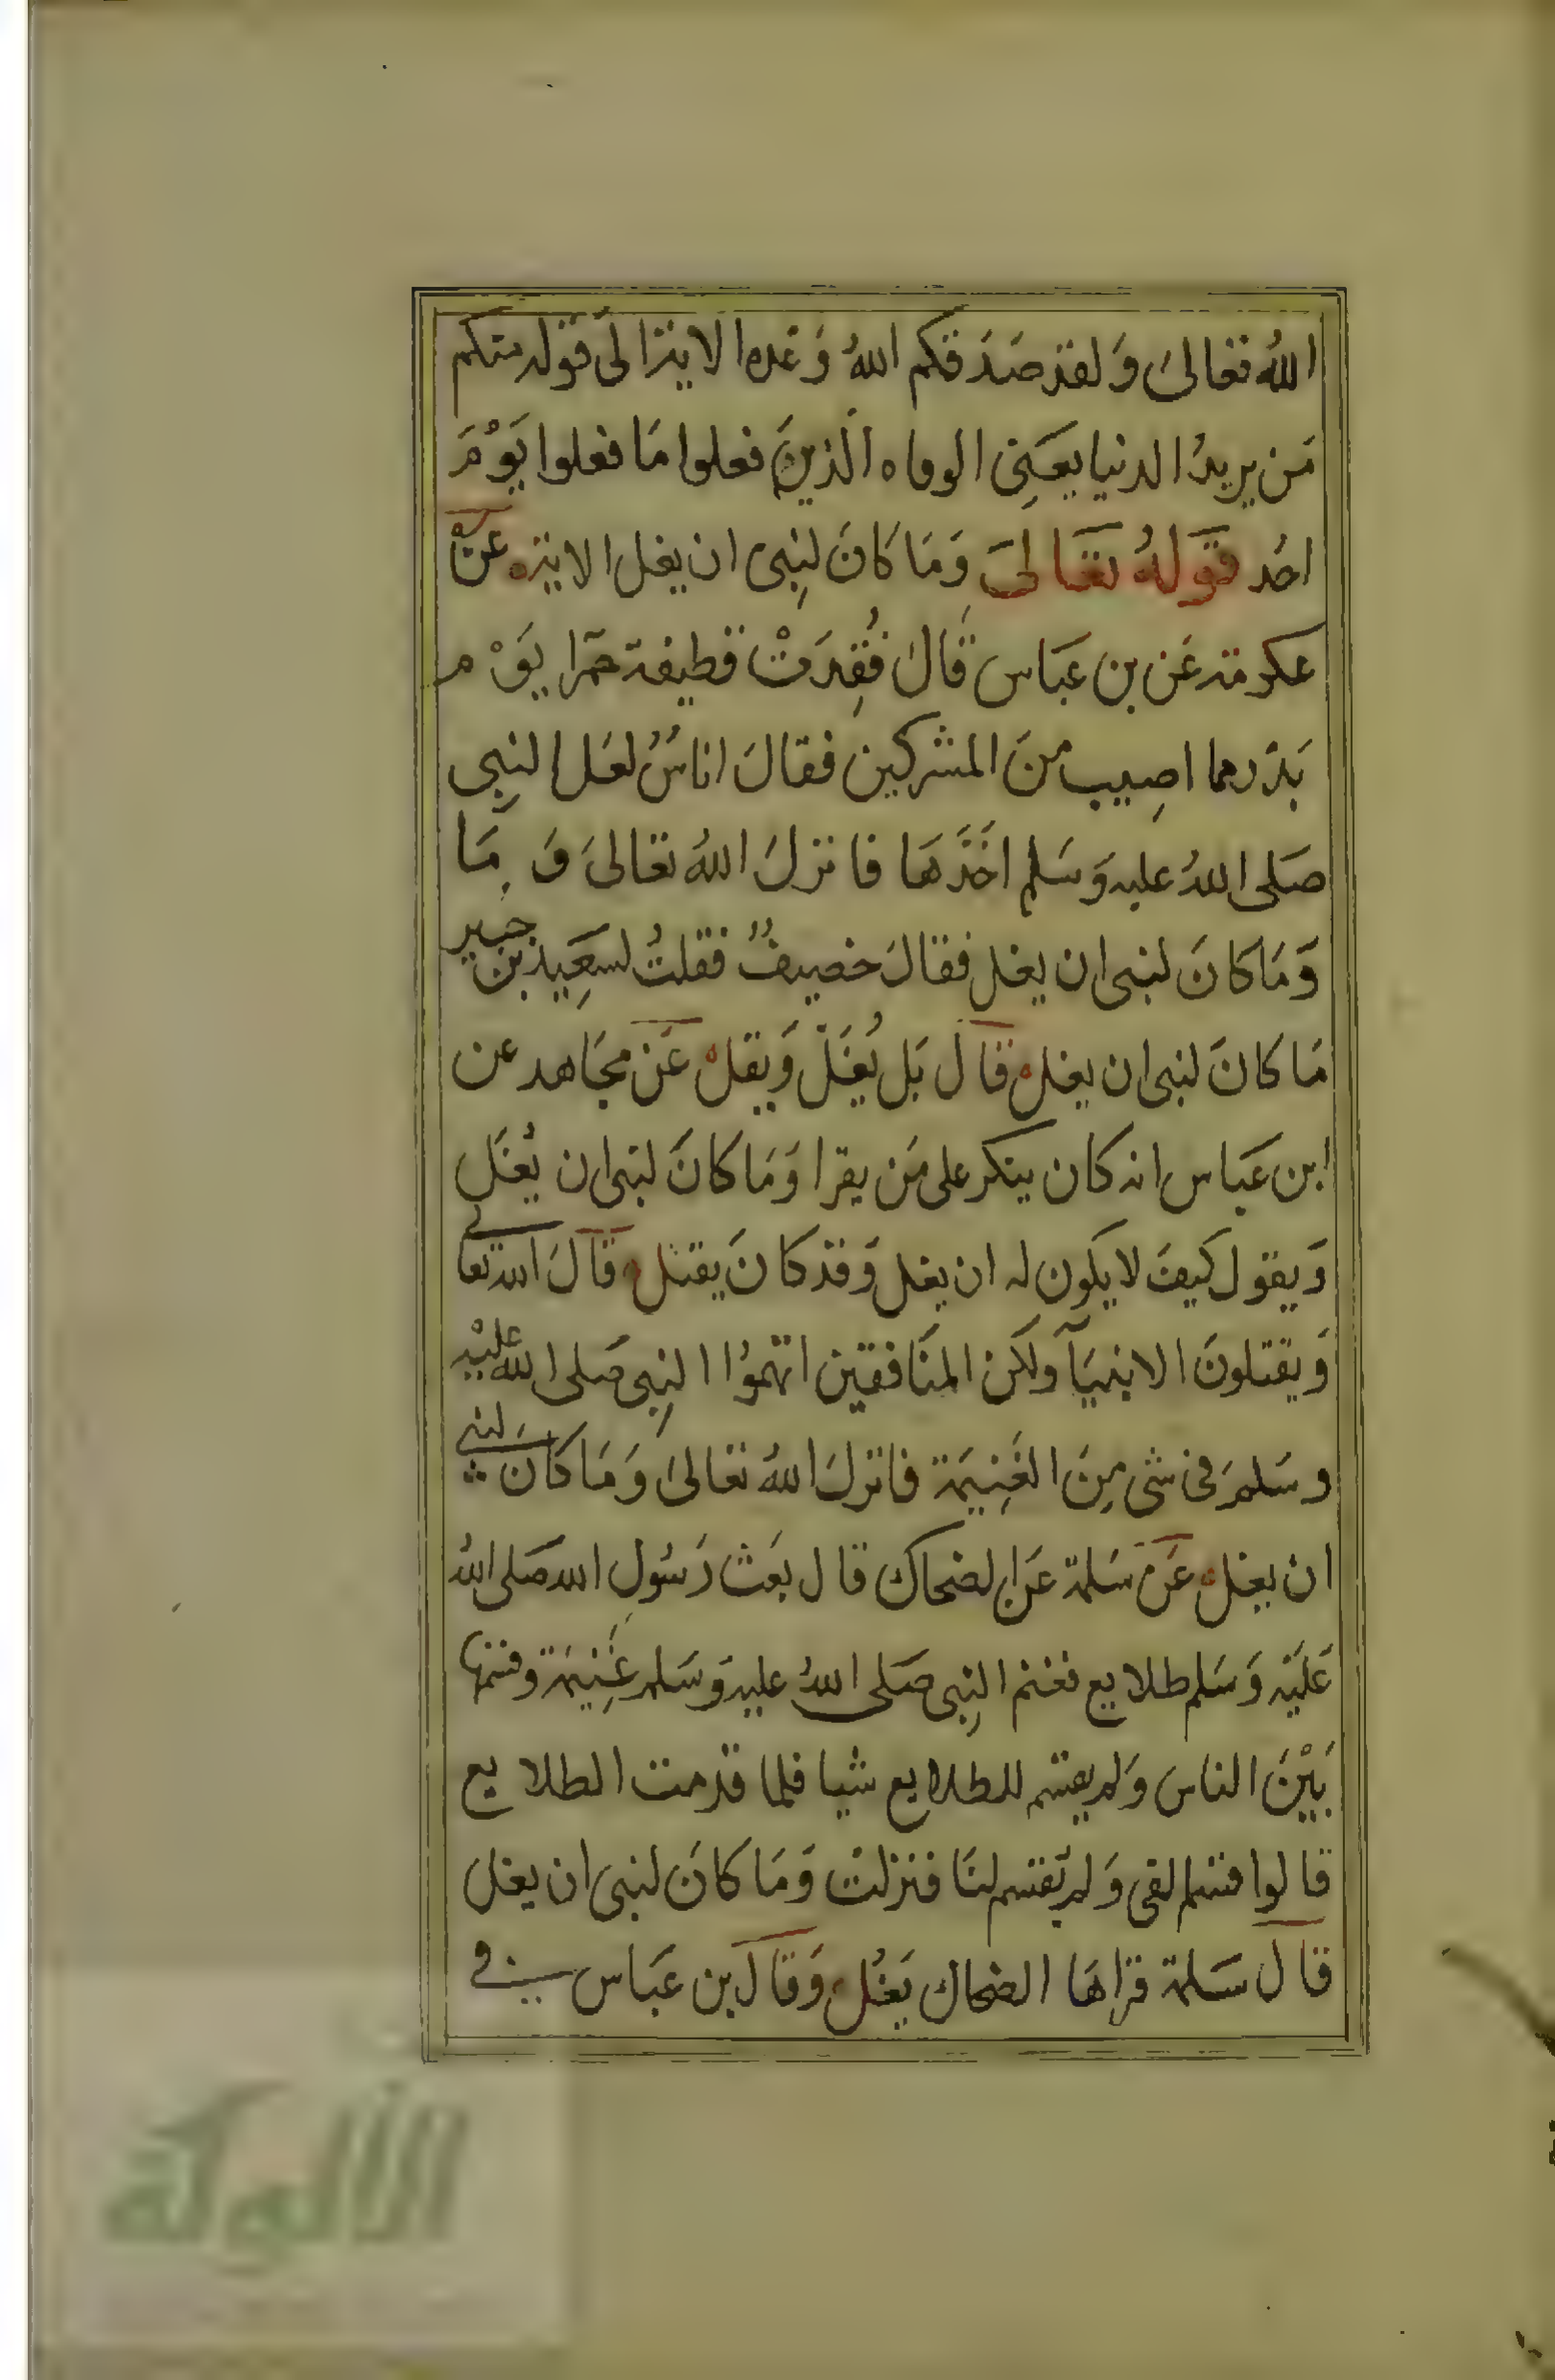 اللهُ تعالىَ وَلقد صَدَقكم اللهُ وَعده الاية الىَ قوله منكم
مَن يريدُ الدنيا يعَنِى الرماه الّذينَ فعلوا مَا فعلوا يَوْمَ
احُد قَولهُ تعَالىَ وَمَا كانَ لنِبى ان يغل الاية ه عَن
عكرمة عَن بن عبَاس قَالَ فُقِدَتْ قطيفة حمَرا يَوْم
بَدْر مما اصِيب منَ المشركين فقالَ اناسُ لعَل النبِى
صَلى اللهُ عليه وَسَلم اخَذَهَا فانزلَ اللهُ تعالىَ وَمَا
وَمَا كانَ لنبى ان يغل فقالَ خصيفٌ فقلتُ لسَعِيد بن جبير
مَا كانَ لنبى ان يغل ه قال بَل يُغَلّ وَيقل ه عَن مجَاهد عن
ابن عَباس انه كان ينكر على مَن يقرا وَمَا كانَ لنبى ان يُغَل
وَيقول كيفَ لا يكون له ان يغل وَقد كانَ يقتل ه قالَ الله تعالى
وَيقتلونَ الانبيَآ ولكن المنَافقين اتهموُا النبِى صَلى الله عليْه
وسَلمَ فى شى مِنَ الغَنِيمَة فانزلَ اللهُ تعالىَ وَمَا كانَ لنبى
ان يغل ه عَن سَلمة عَن الضحاك قال بعَث رَسُولِ الله صَلى اللهُ
عَليَه وَسَلم طلايع فغنم النبِى صَلى اللهُ عليه وَسَلم غَنِيمَة وقسمها
بَيْنَ الناس وَلم يقسم للطلايع شيا فلما قدمت الطلايع
قالوا قسم الفى وَلم يَقسم لنَا فنزلتْ وَمَا كانَ لنبى ان يغل
قال سَلمة قرَاهَا الضحاك يَغُل ه وَقالَ بن عبَاس فى
الألوكة